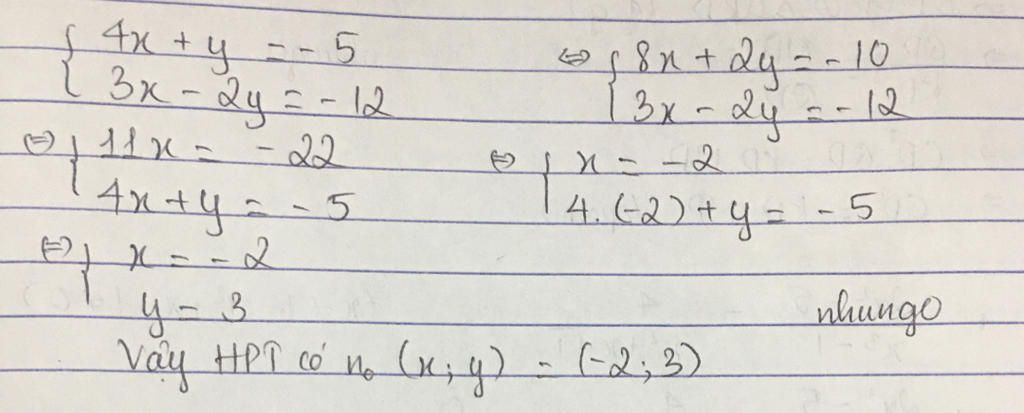 { 4x + y = - 5 ⇔ { 8x + 2y = - 10
3x - 2y = - 12 3x - 2y = - 12
⇔ { 11x = - 22 ⇔ { x = - 2
4x + y = - 5 4.(-2) + y = - 5
⇔ { x = - 2
y = 3 nhungo
Vậy HPT có no (x; y) = (-2; 3)